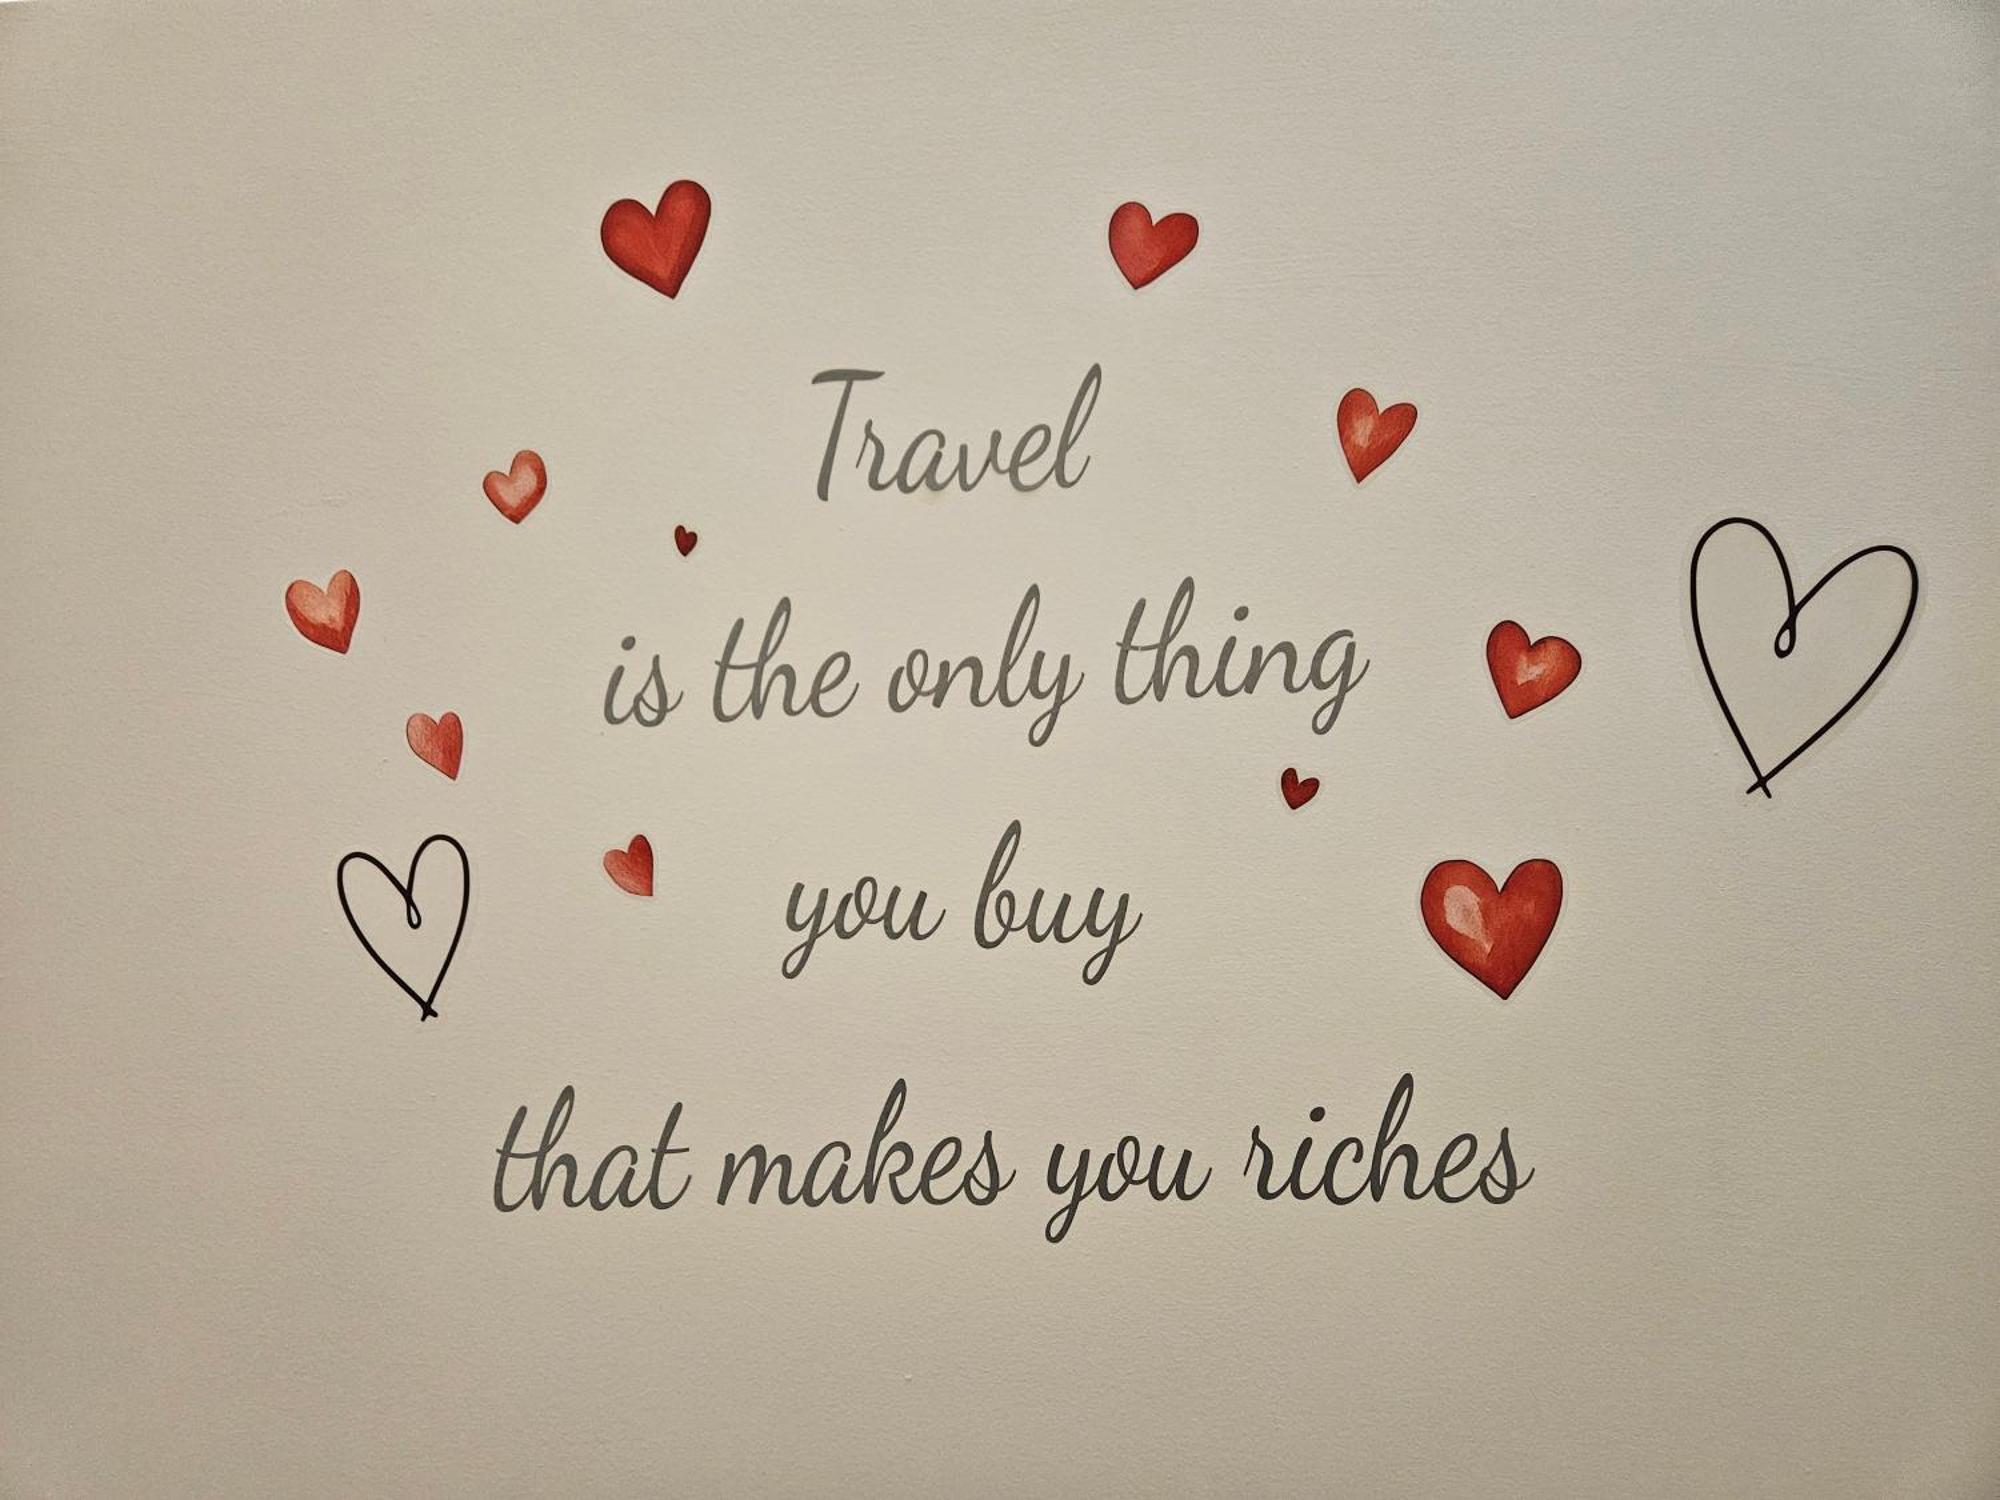 Travel
is the only thing
you buy
that makes you riches